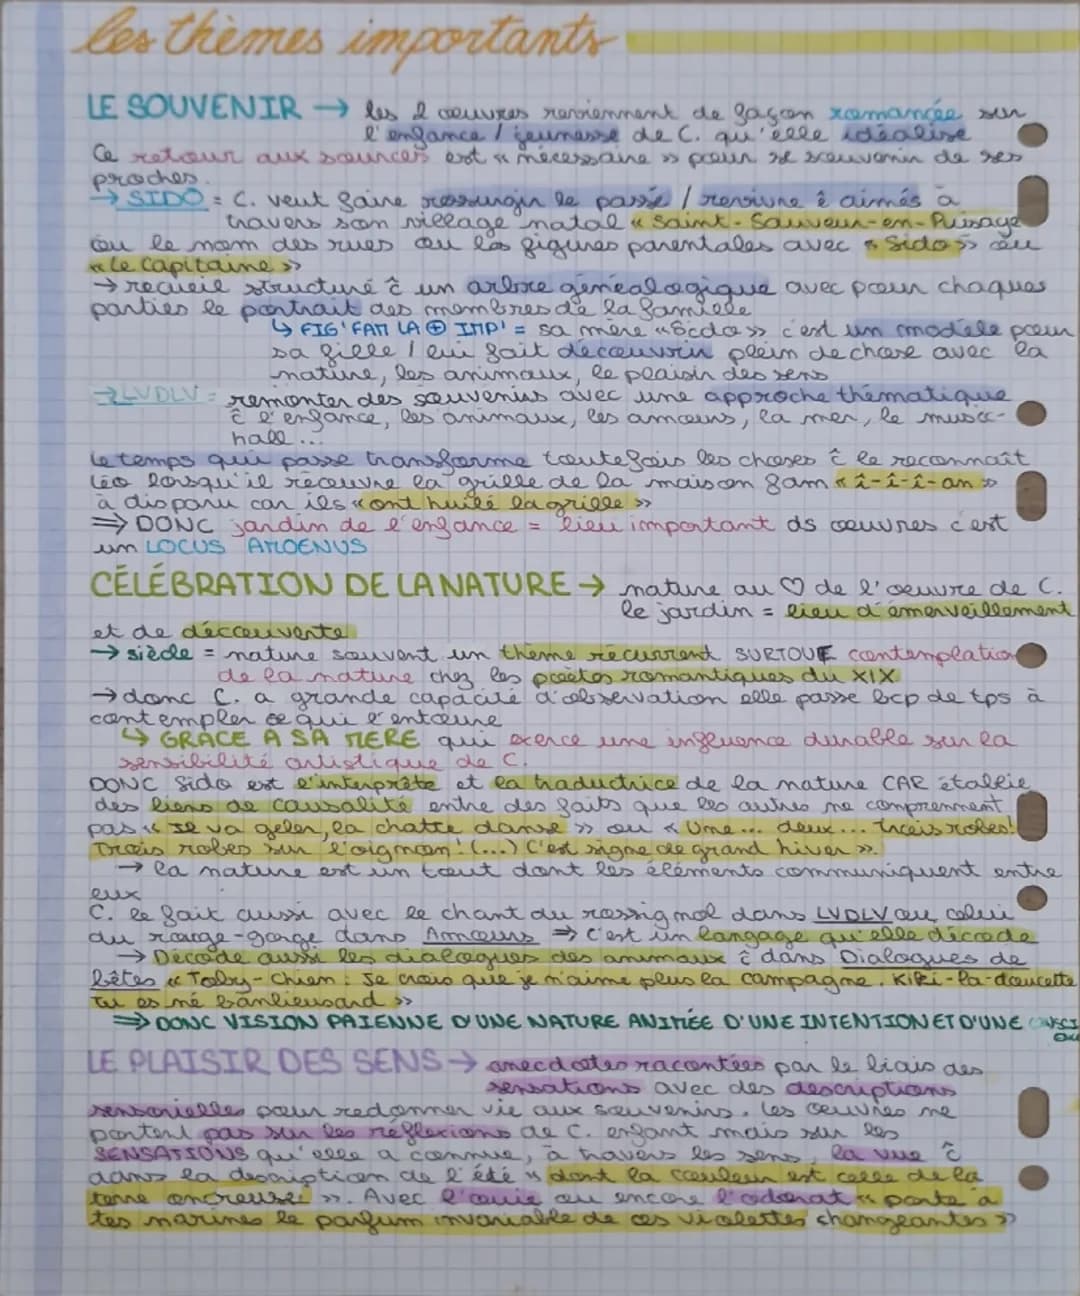 les thèmes importants
LE SOUVENIR → les 2 œuvres reviennent de façon romancée sur
l'enfance / jeunesse de C. qu'elle idéalise
Ce retour aux sources est « nécessaire » pour se souvenir de ses
proches.
→ SIDO = C. veut faire ressurgir le passé / revivre ê aimés à
travers son village natal « Saint-Sauveur-en-Puisaye
ou le nom des rues ou les figures parentales avec « Sido » ou
« le Capitaine »
→ recueil structuré ĉ un arbre généalogique avec pour chaques
parties le portrait des membres de la famille
↳ FIG' FAM LA ⊕ IMP' = sa mère « Sido » c'est un modèle pour
sa fille / lui fait découvrir plein de chose avec la
nature, les animaux, le plaisir des sens
→ LVDLV = remonter des souvenirs avec une approche thématique
ĉ l'enfance, les animaux, les amours, la mer, le music-
hall...
Le temps qui passe transforme toutefois les choses ĉ le reconnaît
Léo lorsqu'il retrouve la grille de la maison fam « î-î-î-an »
à disparu car ils « ont huilé la grille »
⇒ DONC jardin de l'enfance = lieu important ds œuvres c'est
un LOCUS AMOENUS
CÉLÉBRATION DE LA NATURE → nature au ♡ de l'œuvre de C.
le jardin = lieu d'émerveillement
et de découverte
→ siècle = nature souvent un thème récurrent SURTOUT contemplation
de la nature chez les poètes romantiques du XIX
→ donc C. a grande capacité d'observation elle passe bcp de tps à
contempler ce qui l'entoure
↳ GRACE A SA MERE qui exerce une influence durable sur la
sensibilité artistique de C.
DONC Sido est l'interprète et la traductrice de la nature CAR établie
des liens de causalité entre des faits que les autres ne comprennent
pas « Il va geler, la chatte danse » ou « Une... deux... Trois robes!
Trois robes sur l'oignon! (...) C'est signe de grand hiver ».
→ la nature est un tout dont les éléments communiquent entre
eux
C. le fait aussi avec le chant du rossignol dans LVDLV ou celui
du rouge-gorge dans Amours ⇒ c'est un langage qu'elle décode
→ Décode aussi les dialogues des animaux ĉ dans Dialogues de
bêtes « Toby-Chien : Je crois que je n'aime plus la campagne. Kiki-la-doucette
Tu es né banlieusard »
⇒ DONC VISION PAIENNE D'UNE NATURE ANIMÉE D'UNE INTENTION ET D'UNE
LE PLAISIR DES SENS → anecdotes racontées par le biais des
sensations avec des descriptions
sensorielles pour redonner vie aux souvenirs. Les œuvres ne
portent pas sur les réflexions de C. enfant mais sur les
SENSATIONS qu'elle a connue, à travers les sens, la vue ĉ
dans la description de l'été « dont la couleur est celle de la
terre ». Avec l'ouïe ou encore l'odorat « porte à
tes narines le parfum invariable de ces violettes changeantes »